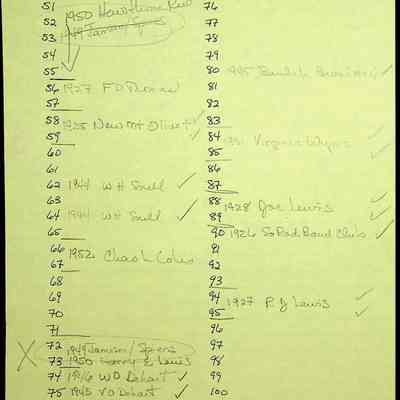 51 1950 Hawthorne
52
53 1949 Jamison/Spers
54
55
56 1927 F D Thomas
57
58 1925 New Mt Olive
59
60
61
62 1944 W H Snell
63
64 1944 W H Snell
65
66 1952 Chas L
67
68
69
70
71
72 1949 Jamison/Spers
73 1950 Lewis
74 1946 W D Dehart
75 1945 V D Dehart
76
77
78
79
80
81
82
83
84 Virginia
85
86
87
88 1928 Joe Lewis
89
90 1926 So Rad Band Club
91
92
93
94 1927 R J Lewis
95
96
97
98
99
100